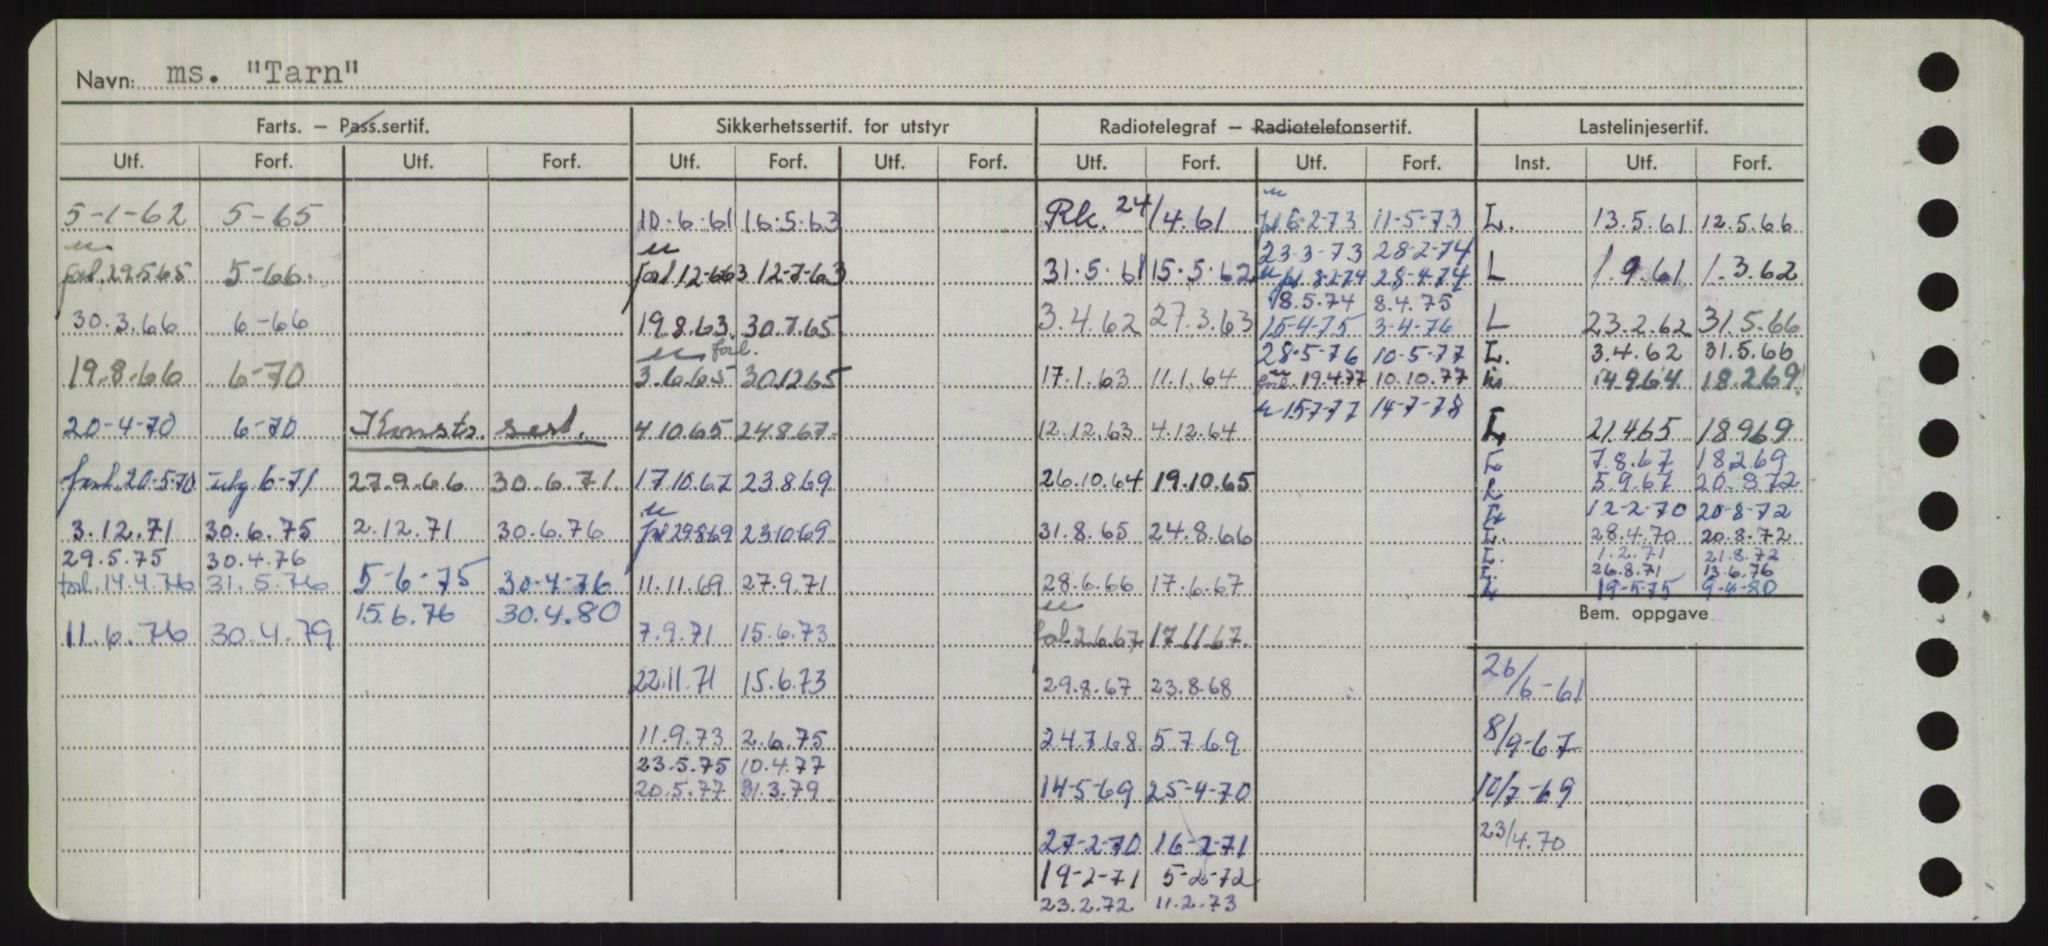 Navn: ms. "Tarn"
Farts. – Pass.sertif. Sikkerhetssertif. for utstyr Radiotelegraf – Radiotelefonsertif. Lastelinjesertif.
Utf. Forf. Utf. Forf. Utf. Forf. Utf. Forf. Utf. Forf. Utf. Forf. Inst. Utf. Forf.
5-1-62 5-65 10.6.61 16.5.63 Rk. 24/4.61 6-2-73 11-5-73 L. 13.5.61 12.5.66
23-3-73 28-2-74
forl. 29.5.65 5-66. forl 12-663 12-7-63 31.5.61 15.5.62 8-2-74 28-4-74 L 1.9.61 1.3.62
18.5.74 8.4.75
30.3.66 6-66 19.8.63. 30.7.65 3.4.62 27.3.63 15-4-75 3-4-76 L 23.2.62 31.5.66
forl. 28-5-76 10-5-77 L. 3.4.62 31.5.66
19.8.66 6-70 3.6.65 30.12.65 17.1.63 11.1.64 19.4.77 10.10.77 14.9.64 18.2.69
15-7-77 14-7-78
20-4-70 6-70 Konstr. sert. 4.10.65 24.8.67. 12.12.63 4.12.64 L 21.4.65 18.9.69
L 7.8.67 18.2.69
forl. 20-5-70 utg 6-71 27.9.66 30.6.71. 17.10.67 23.8.69 26.10.64 19.10.65 L 5.9.67 20.8.72
L 12-2-70 20-8-72
3.12.71 30.6.75 2.12.71 30.6.76 forl 29.8.69 23.10.69 31.8.65 24.8.66 L. 28.4.70 20.8.72
29.5.75 30.4.76 L. 1.2.71 21.8.72
L. 26.8.71 13.6.76
forl. 14.4.76 31.5.76 5-6-75 30-4-76 11.11.69 27.9.71 28.6.66 17.6.67 L 19-5-75 9-4-80
15.6.76 30.4.80 Bem. oppgave
11.6.76 30.4.79 7.9.71 15.6.73 forl. 2.6.67 17.11.67.
22.11.71 15.6.73 29.8.67 23.8.68 26/6-61
11.9.73 2.6.75 24.7.68 5.7.69 8/9-67
23.5.75 10.4.77
20.5.77 31.3.79 14-5-69 25-4-70 10/7-69
27-2-70 16-2-71 23/4.70
19-2-71 5-2-72
23.2.72 11.2.73